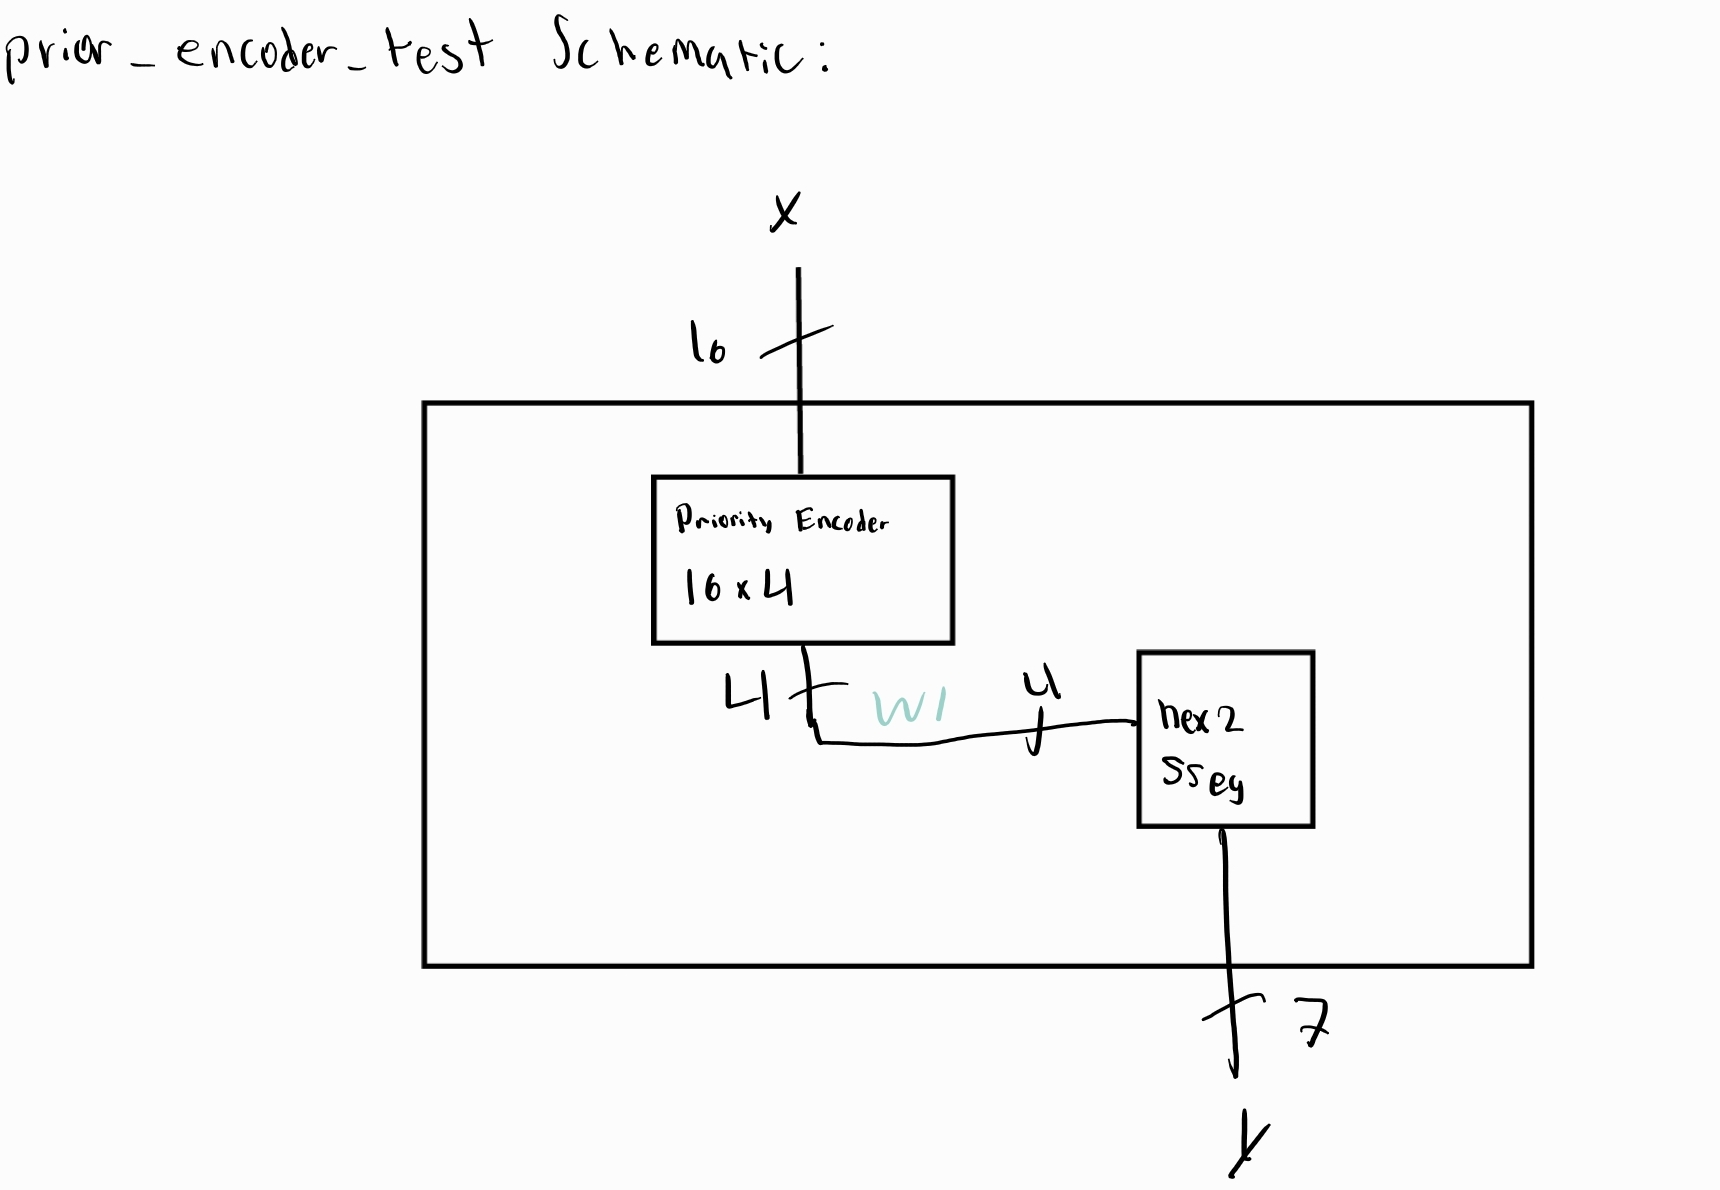 prior_encoder_test Schematic:
X
16
Priority Encoder
16x4
4
W1
4
hex2
sseg
7
y